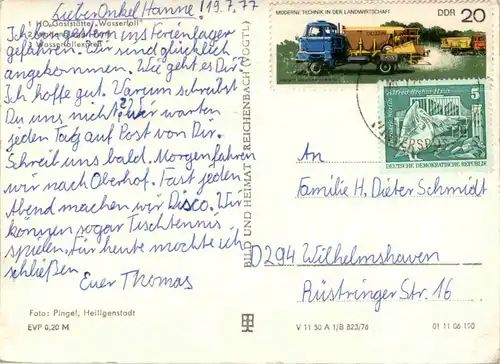 Lieber Onkel Hanne! 19.7.77
1 HO-Gaststätte "Wasserfall"
Ich bin gestern ins Ferienlager
gefahren. Wir sind glücklich
3 Wasserfallexpreß
angekommen. Wie geht es Dir?
Ich hoffe gut. Warum schreibst
Du uns nicht? Wir warten
jeden Tag auf Post von Dir.
Schreib uns bald. Morgen fahren
wir nach Oberhof. Fast jeden
Abend machen wir Disco. Wir
können sogar Tischtennis
spielen. Für heute mochte ich
schließen
Euer Thomas
Foto: Pingel, Heiligenstadt
EVP 0,20 M
BILD UND HEIMAT REICHENBACH (VOGTL)
MODERNE TECHNIK IN DER LANDWIRTSCHAFT
DDR 20
5
DEUTSCHE DEMOKRATISCHE REPUBLIK
An
Familie H. Dieter Schmidt
D294 Wilhelmshaven
Rüstringer Str. 16
V 11 50 A 1/B 823/76
01 11 06 190